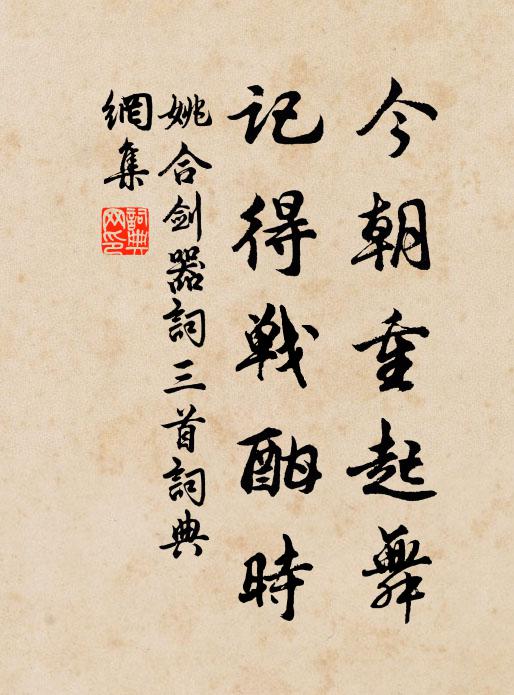 今朝重起舞
記得戰酣時
姚合劍器詞三首詞典
網集
詞典網印